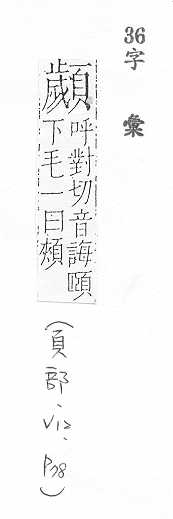 36字彙
顪
呼對切音誨頤
下毛一曰頰
(頁部、V12、P78)